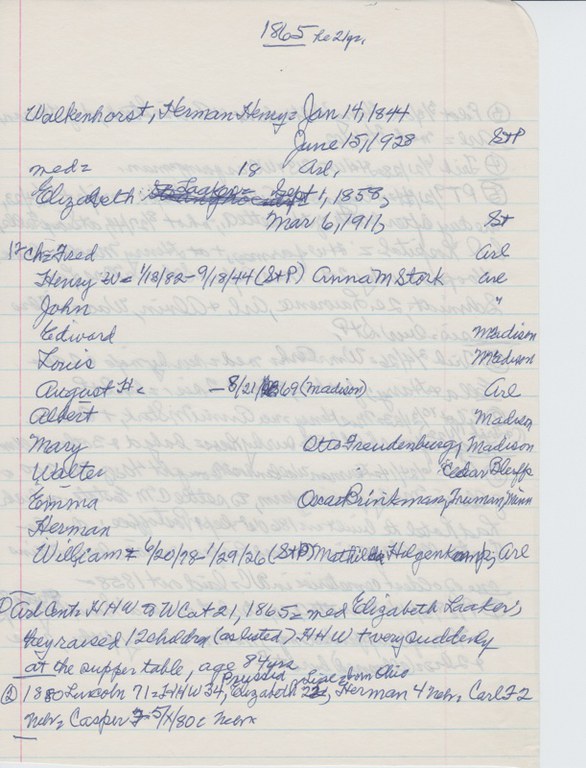 1865 he 21yr.
Walkenhorst, Herman Henry = Jan 14, 1844
June 15, 1928 St P
med = 18 Arl,
Elizabeth Laaker = Sept 1, 1858,
Mar 6, 1911, St
12 Ch = Fred Arl
Henry W = 1/18/82 - 9/18/44 (StP) Anna M Stork Arl
John "
Edward Madison
Louis Madison
August H. - 8/21/1969 (Madison) Arl
Albert Madison
Mary Otto Freudenburg, Madison
Walter Cedar Bluffs
Emma Oscar Brinkman, Truman, Minn
Herman
William = 6/20/98 - 1/29/26 (StP) Mathilda Helgenkamp, Arl
① Arl Cent = HHW to WCat 21, 1865 = med Elizabeth Laaker;
they raised 12 childrn (as listed) HHW + very suddenly
at the supper table, age 84 yrs
Prussia born Ohio
② 1880 Lincoln 71 = HHW 34, Elizabeth 22, Herman 4 Nebr, Carl F 2
Nebr, Casper F 5/X/80 c Nebr